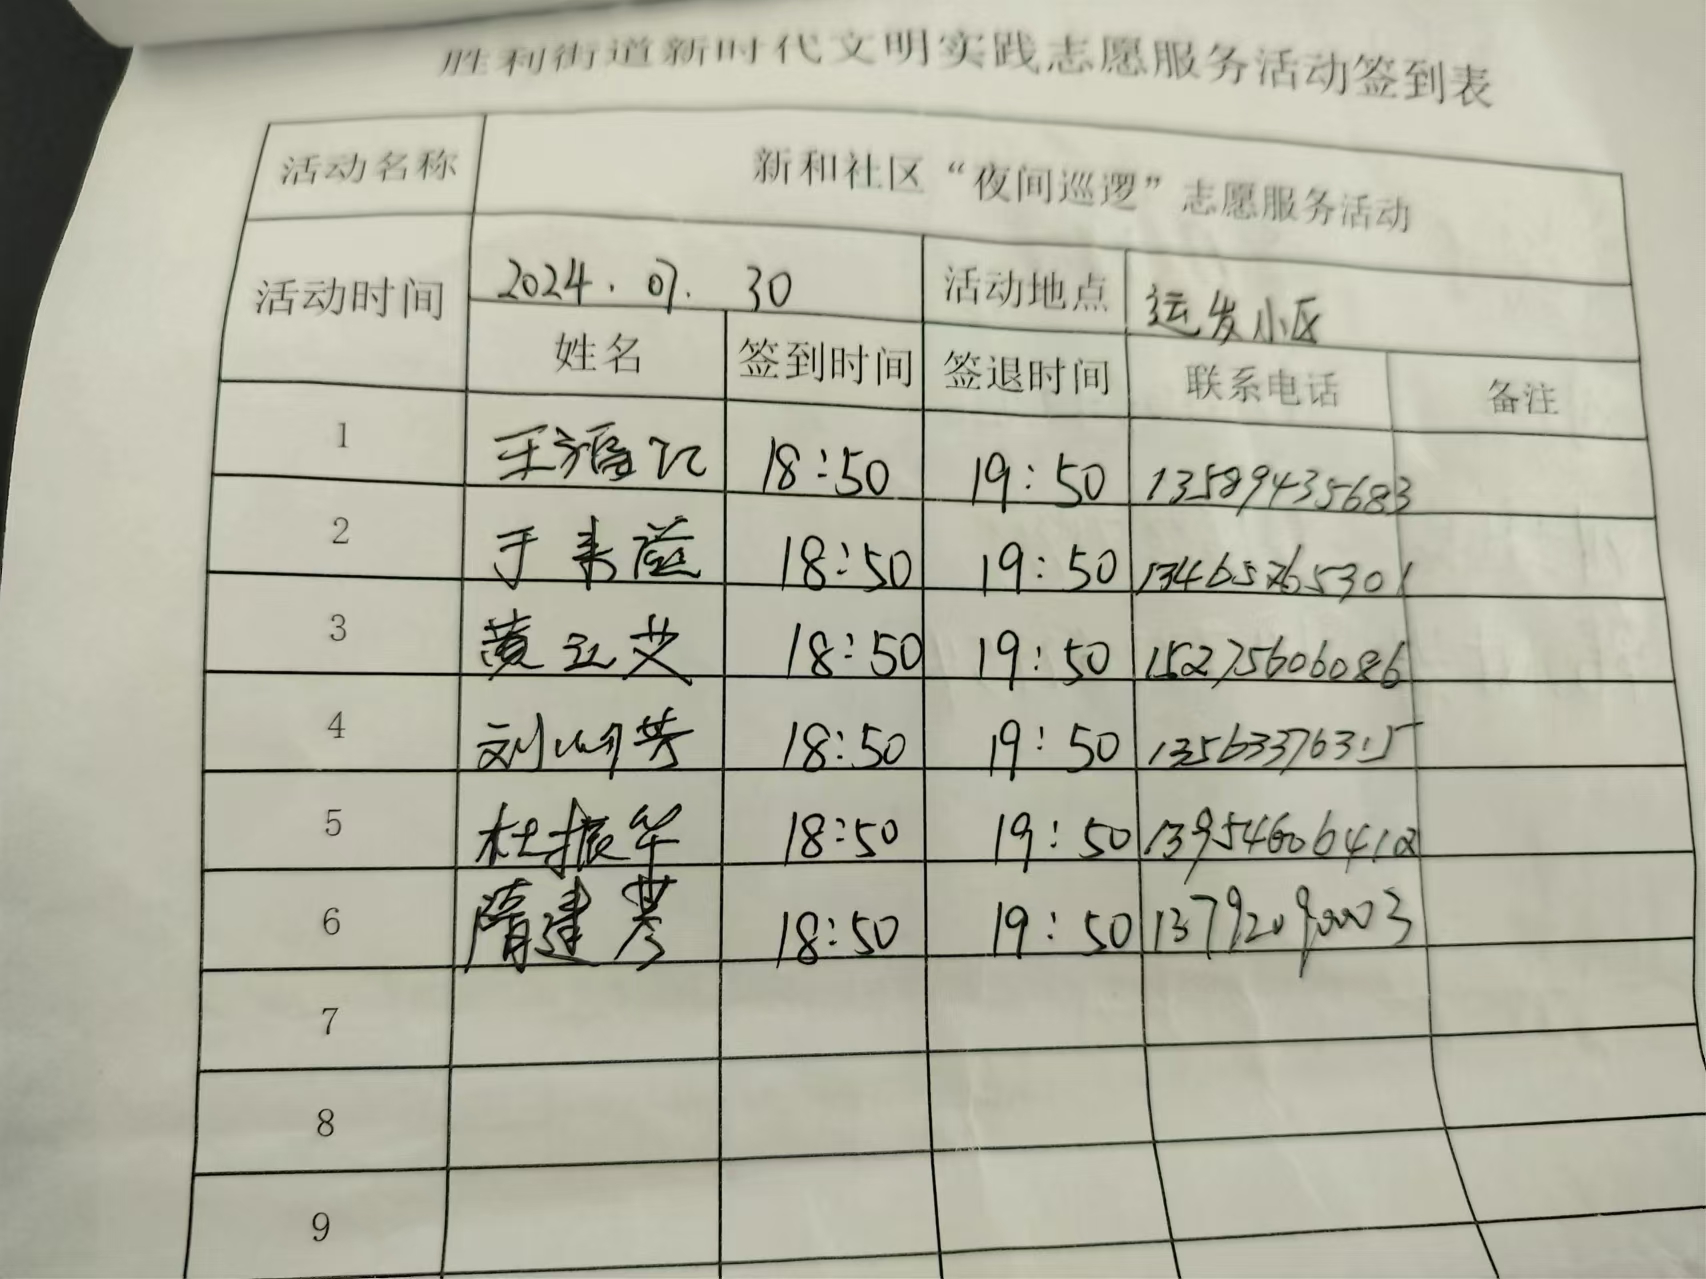 胜利街道新时代文明实践志愿服务活动签到表
活动名称 新和社区“夜间巡逻”志愿服务活动
活动时间 2024.07.30 活动地点 运发小区
姓名 签到时间 签退时间 联系电话 备注
1 王福 18:50 19:50 13589435683
2 于来益 18:50 19:50 13465765301
3 黄红艾 18:50 19:50 15275606086
4 刘明芳 18:50 19:50 13563376315
5 杜振华 18:50 19:50 13954606412
6 隋建芩 18:50 19:50 13792090003
7
8
9